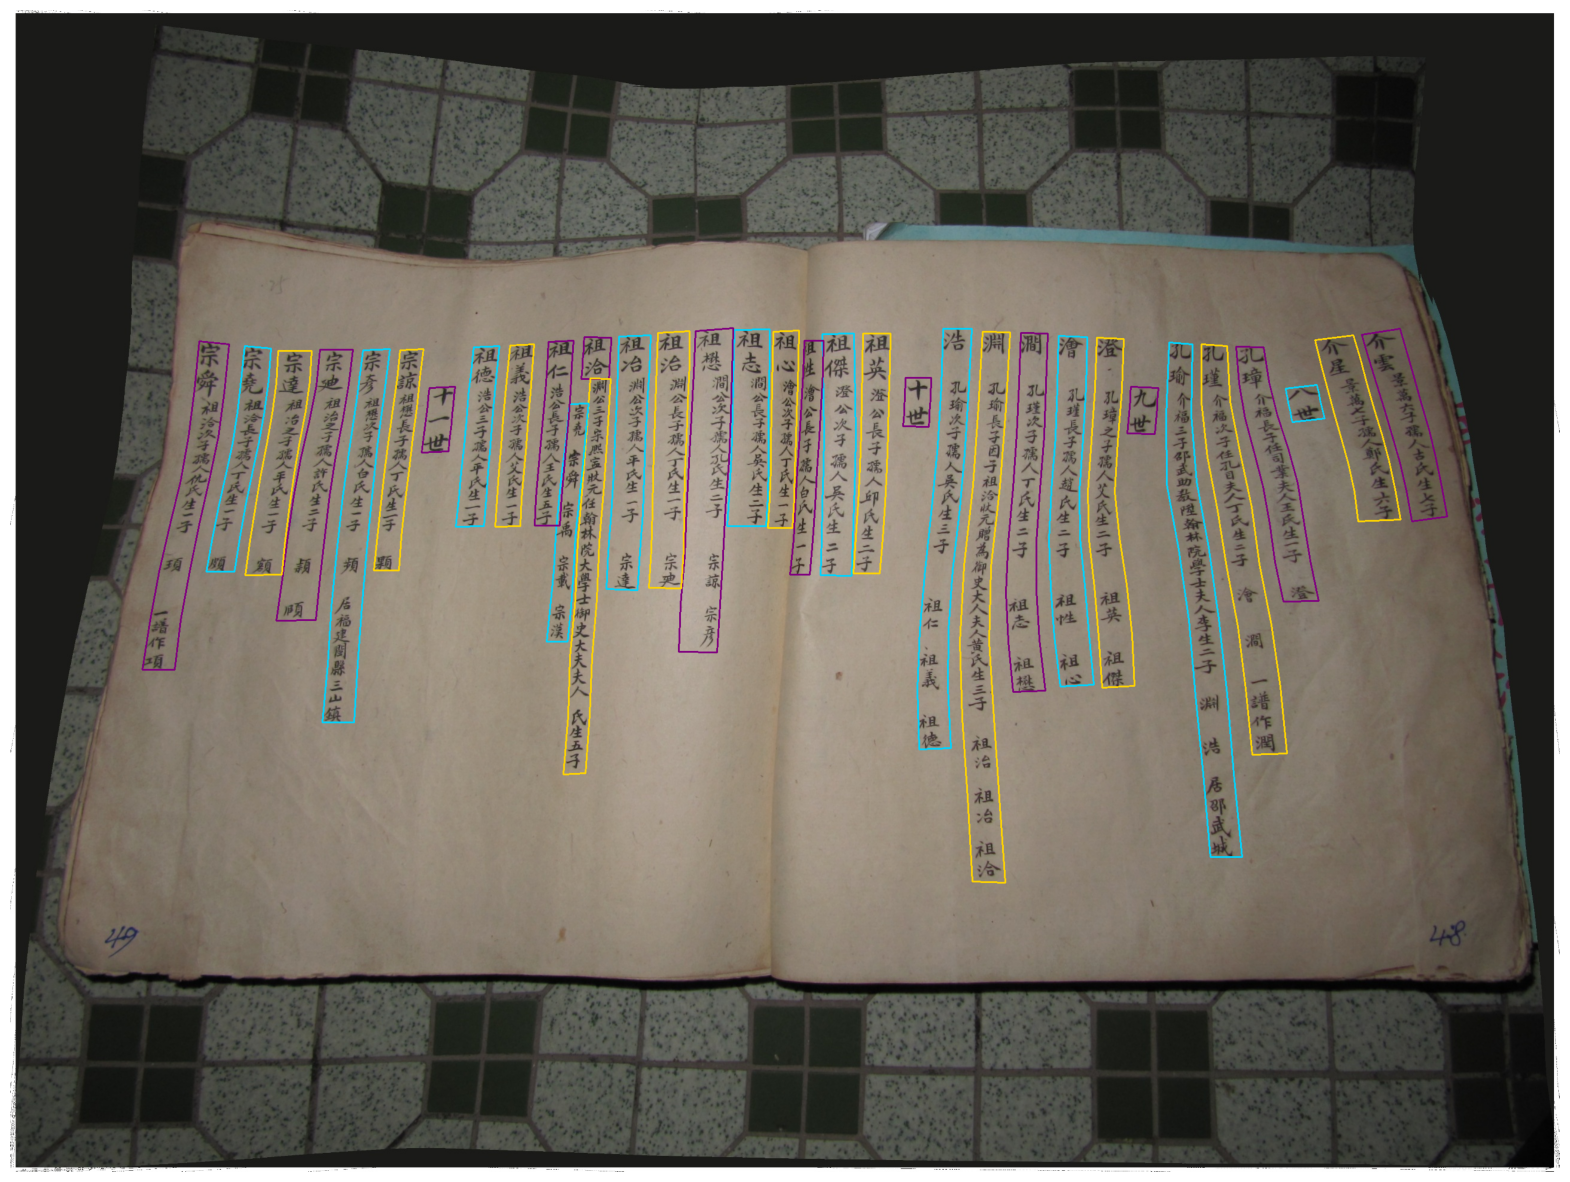 介雲 景萬六子孺人古氏生七子
介星 景萬七子孺人鄭氏生六子
八世
孔璋 介福長子任司業夫人王氏生一子 澄
孔瑾 介福次子任孔目夫人丁氏生二子 澮 澗 一譜作潤
孔瑜 介福三子邵武助教陞翰林院學士夫人李生二子 淵 浩 居邵武城
九世
澄 孔璋之子孺人艾氏生二子 祖英 祖傑
澮 孔瑾長子孺人趙氏生二子 祖性 祖心
澗 孔瑾次子孺人丁氏生二子 祖志 祖懋
淵 孔瑜長子因子祖洽狀元贈為御史大人夫人黄氏生三子 祖治 祖冶 祖洽
浩 孔瑜次子孺人吳氏生三子 祖仁 祖義 祖德
十世
祖英 澄公長子孺人邱氏生二子
祖傑 澄公次子孺人吳氏生二子
祖性 澮公長子孺人白氏生一子
祖心 澮公次子孺人丁氏生一子
祖志 澗公長子孺人吳氏生二子
祖懋 澗公次子孺人孔氏生二子 宗諒 宗彦
祖治 淵公長子孺人丁氏生一子 宗廸
祖冶 淵公次子孺人平氏生一子 宗達
祖洽
淵公三子宗熙寧狀元任翰林院大學士御史大夫夫人 氏生五子
宗堯 宗舜 宗禹 宗載 宗漢
祖仁 浩公長子孺人王氏生五子
祖義 浩公次子孺人艾氏生一子
祖德 浩公三子孺人平氏生一子
十一世
宗諒 祖懋長子孺人丁氏生一子 顆
宗彦 祖懋次子孺人白氏生一子 頻 居福建閩縣三山鎮
宗廸 祖治之子孺人許氏生二子 頴 頎
宗達 祖冶之子孺人平氏生一子 顥
宗堯 祖洽長子孺人丁氏生一子 顒
宗舜 祖洽次子孺人仇氏生一子 頊 一譜作項
49
48